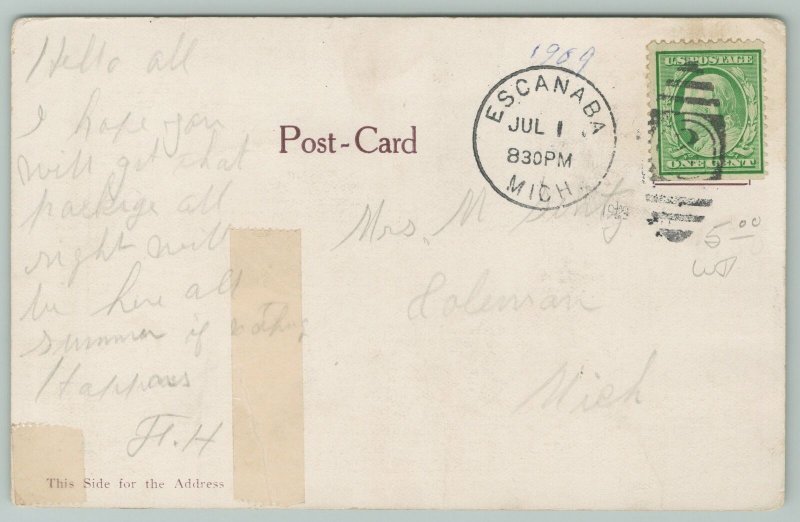 Hello all
I hope you
will get that
package all
right will
be here all
summer if nothing
Happens
H.H
This Side for the Address
Post-Card
1909
ESCANABA
JUL 1
830PM
MICH
U.S. POSTAGE
ONE CENT
Mrs. M
Coleman
Mich
5.00